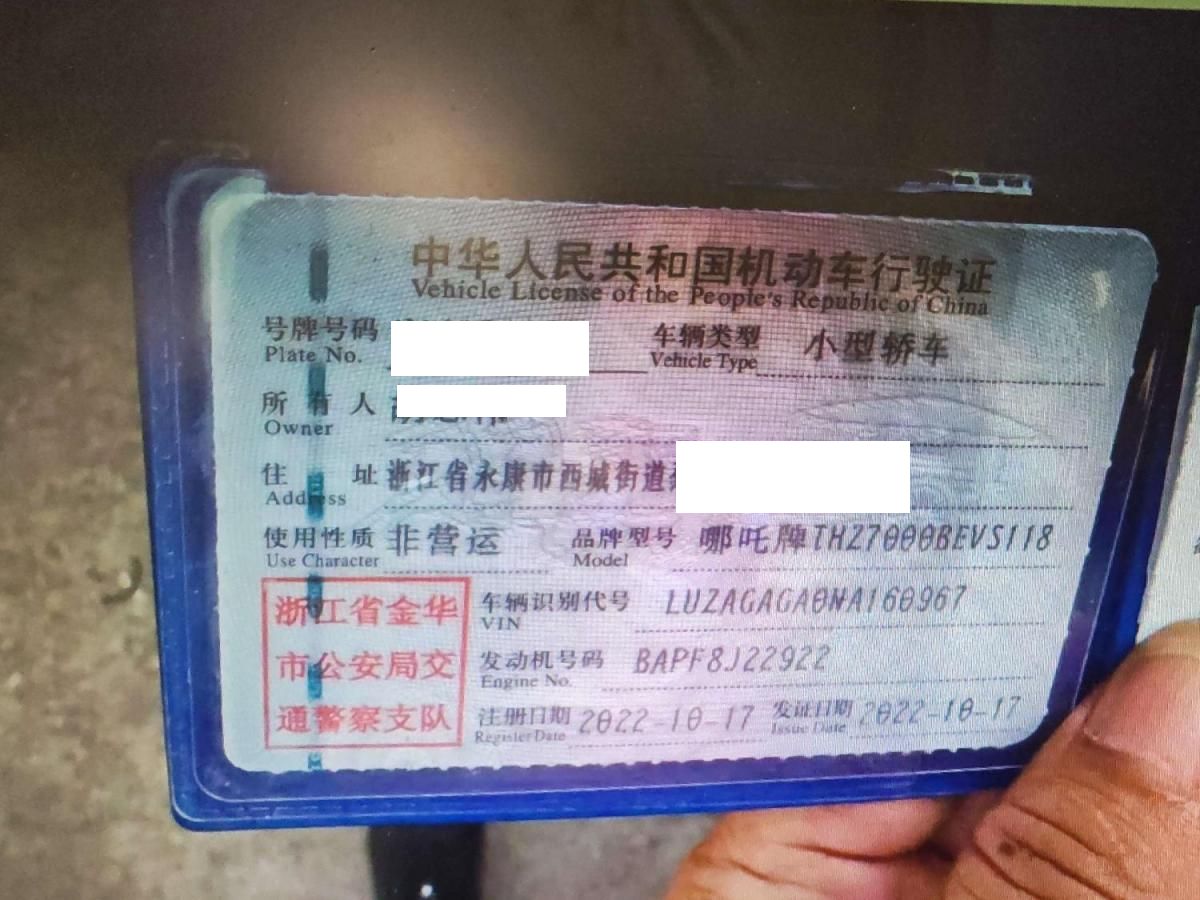 中华人民共和国机动车行驶证
Vehicle License of the People's Republic of China
号牌号码 车辆类型 小型轿车
Plate No. Vehicle Type
所有人
Owner
住址 浙江省永康市西城街道
Address
使用性质 非营运 品牌型号 哪吒牌THZ7000BEVS118
Use Character Model
浙江省金华 车辆识别代号 LUZAGAGA0NA160967
VIN
市公安局交 发动机号码 BAPF8J22922
Engine No.
通警察支队 注册日期 2022-10-17 发证日期 2022-10-17
Register Date Issue Date